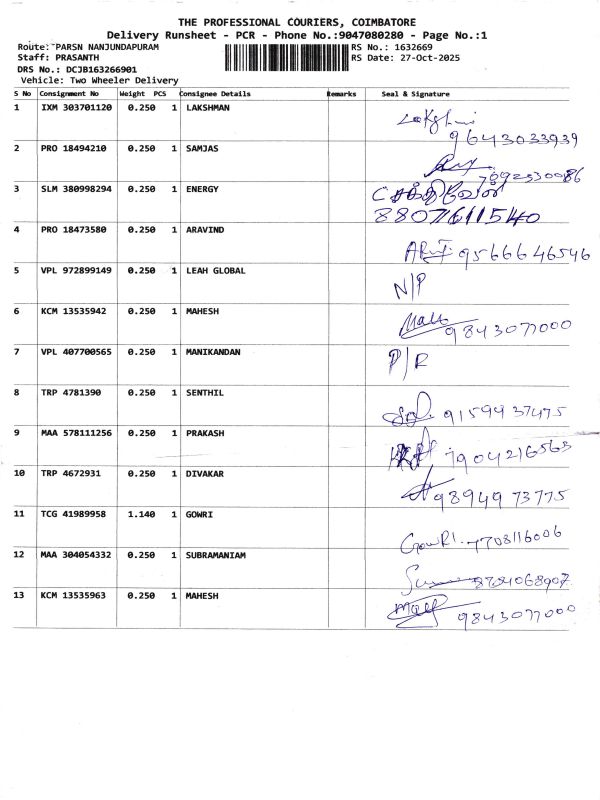 THE PROFESSIONAL COURIERS, COIMBATORE
Delivery Runsheet - PCR - Phone No.:9047080280 - Page No.:1
Route: PARSN NANJUNDAPURAM RS No.: 1632669
Staff: PRASANTH RS Date: 27-Oct-2025
DRS No.: DCJB163266901
Vehicle: Two Wheeler Delivery
S No Consignment No Weight PCS Consignee Details Remarks Seal & Signature
1 IXM 303701120 0.250 1 LAKSHMAN
9643033939
2 PRO 18494210 0.250 1 SAMJAS
3 SLM 380998294 0.250 1 ENERGY சக்திவேல்
8807611540
4 PRO 18473580 0.250 1 ARAVIND
9566646546
5 VPL 972899149 0.250 1 LEAH GLOBAL
N/P
6 KCM 13535942 0.250 1 MAHESH
9843077000
7 VPL 407700565 0.250 1 MANIKANDAN P/R
8 TRP 4781390 0.250 1 SENTHIL
9159437475
9 MAA 578111256 0.250 1 PRAKASH
7904216563
10 TRP 4672931 0.250 1 DIVAKAR
9894973775
11 TCG 41989958 1.140 1 GOWRI
GowRI. 7708116006
12 MAA 304054332 0.250 1 SUBRAMANIAM
13 KCM 13535963 0.250 1 MAHESH
9843077000